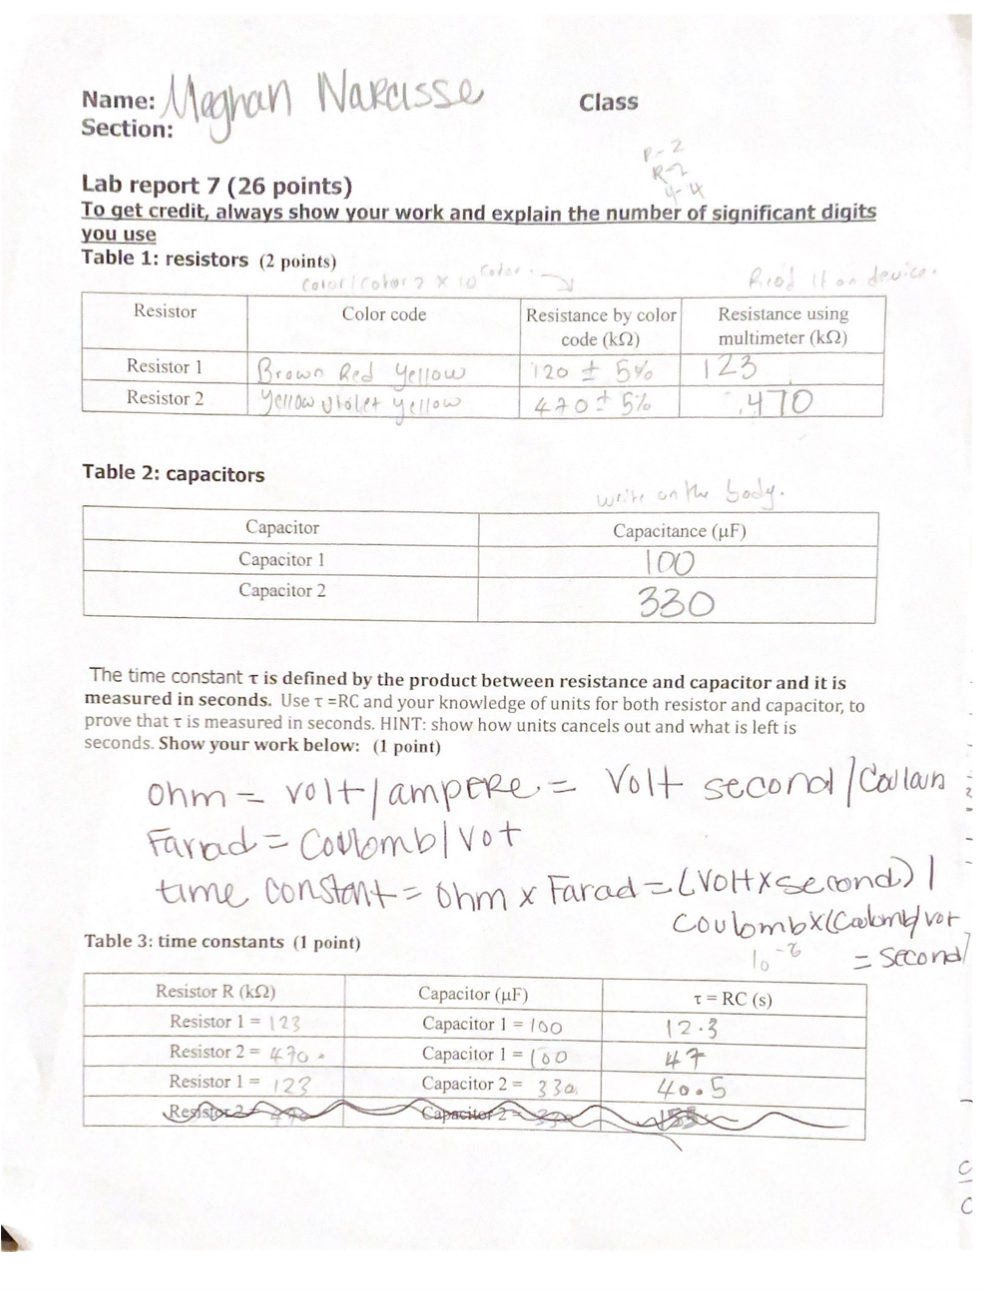 Name: Meghan Narcisse Class
Section:
P-2
R-2
4-4
Lab report 7 (26 points)
To get credit, always show your work and explain the number of significant digits
you use
Table 1: resistors (2 points)
color1color2 x 10 color. Read it on device.
Resistor Color code Resistance by color code (kΩ) Resistance using multimeter (kΩ)
Resistor 1 Brown Red Yellow 120 ± 5% 123
Resistor 2 Yellow Violet Yellow 470 ± 5% .470
Table 2: capacitors
write on the body.
Capacitor Capacitance (µF)
Capacitor 1 100
Capacitor 2 330
The time constant τ is defined by the product between resistance and capacitor and it is
measured in seconds. Use τ =RC and your knowledge of units for both resistor and capacitor, to
prove that τ is measured in seconds. HINT: show how units cancels out and what is left is
seconds. Show your work below: (1 point)
ohm = volt/ampere = Volt second/
Farad = Coulomb/Vot
time constant = ohm x Farad = (Volt x second) /
Coulomb x (Coulomb/vot
= second/
Table 3: time constants (1 point)
Resistor R (kΩ) Capacitor (µF) τ = RC (s)
Resistor 1 = 123 Capacitor 1 = 100 12.3
Resistor 2 = 470. Capacitor 1 = 100 47
Resistor 1 = 123 Capacitor 2 = 330 40.5
Resistor 2 = 470 Capacitor 2 = 330 155